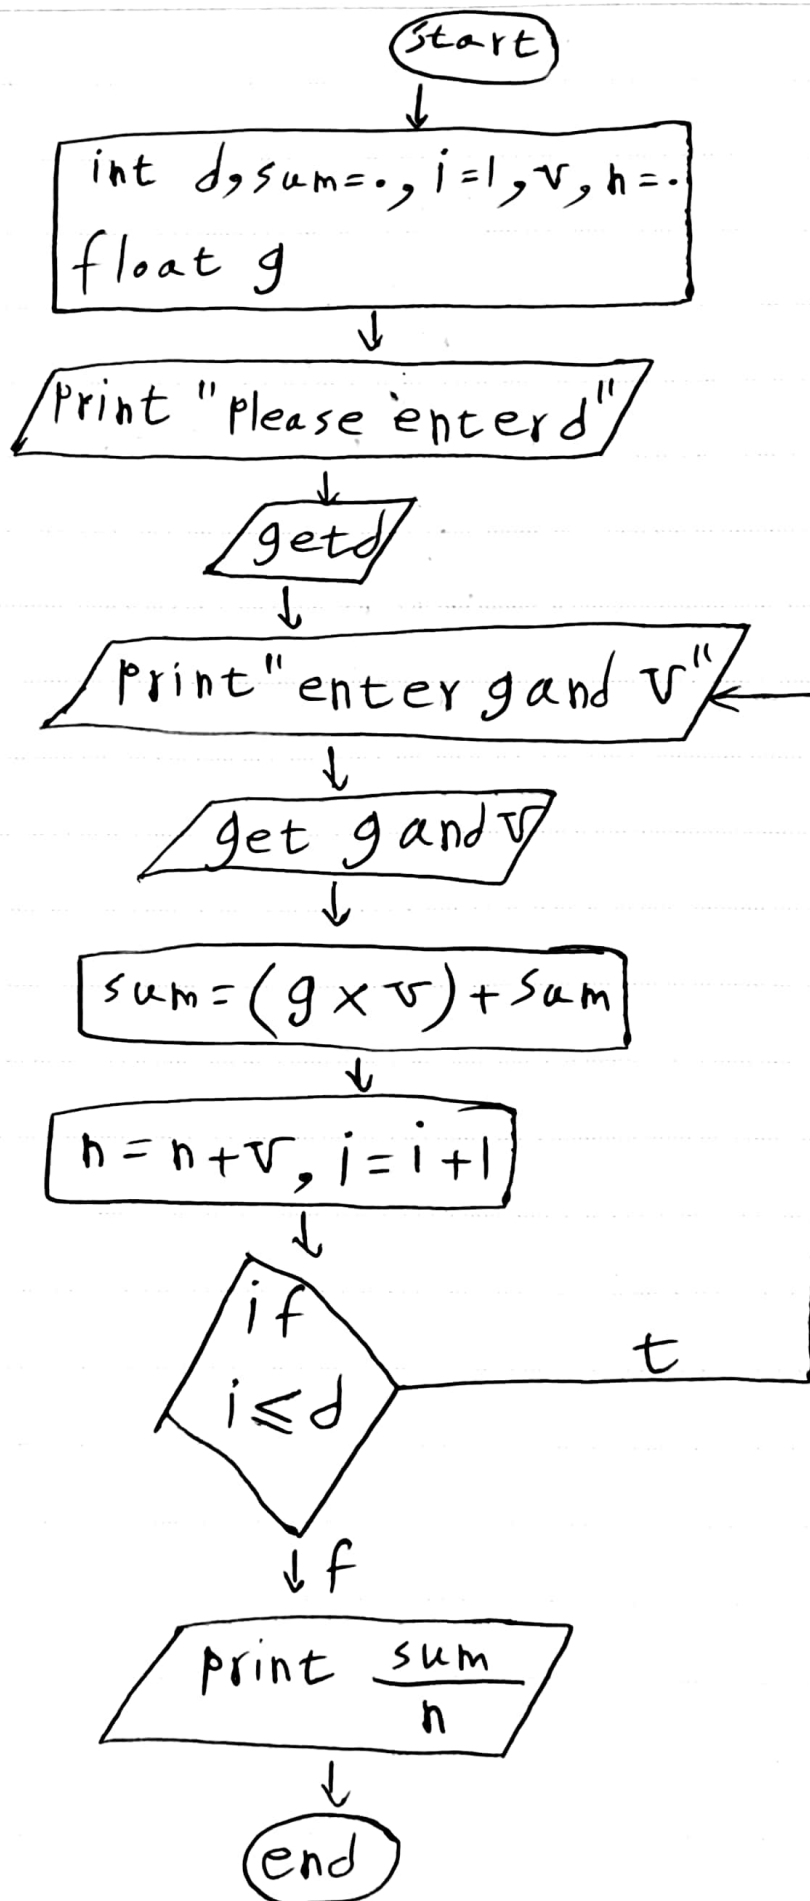 start
int d, sum=., i=1, v, n=.
float g
print "please enter d"
get d
print "enter g and v"
get g and v
sum=(g×v)+sum
n=n+v, i=i+1
if
i≤d
t
f
print sum
n
end